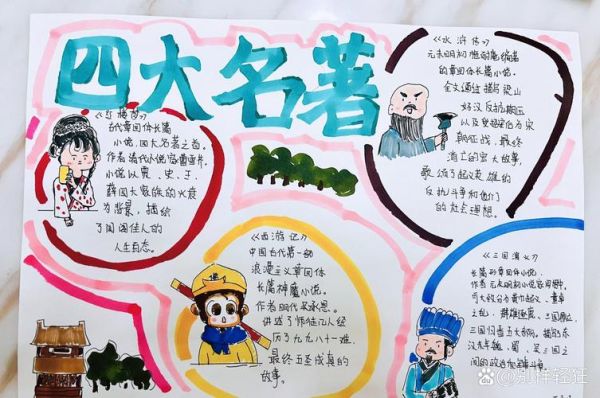 四大名著
《红楼梦》
古代章回体长篇
小说,四大名著之首。
作者清代小说家曹雪芹,
小说以贾、史、王、
薛四大家族的兴衰
为背景,描绘
了闺阁佳人的
人生百态。
《水浒传》
元末明初施耐庵编著
的章回体长篇小说。
全文通过描写梁山
好汉反抗欺压
以及受招安后为宋
朝征战,最终
消亡的宏大故事,
歌颂了起义英雄的
反抗斗争和他们
的社会理想。
《西游记》
中国古代第一部
浪漫主义章回体
长篇神魔小说。
作者明代吴承恩。
讲述了师徒四人经
历了九九八十一难,
最终五圣成真的
故事。
《三国演义》
长篇章回体小说,
作者元末明初小说家罗贯中。
可大致分为黄巾起义、董卓
之乱、群雄逐鹿、三国鼎立、
三国归晋五大部分。描写东
汉末年魏、蜀、吴三国之
间的政治和军事斗争。
别样轻狂